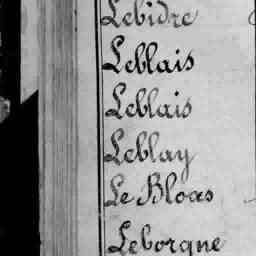 Lebidre
Leblais
Leblais
Leblay
Le Bloas
Leborgne